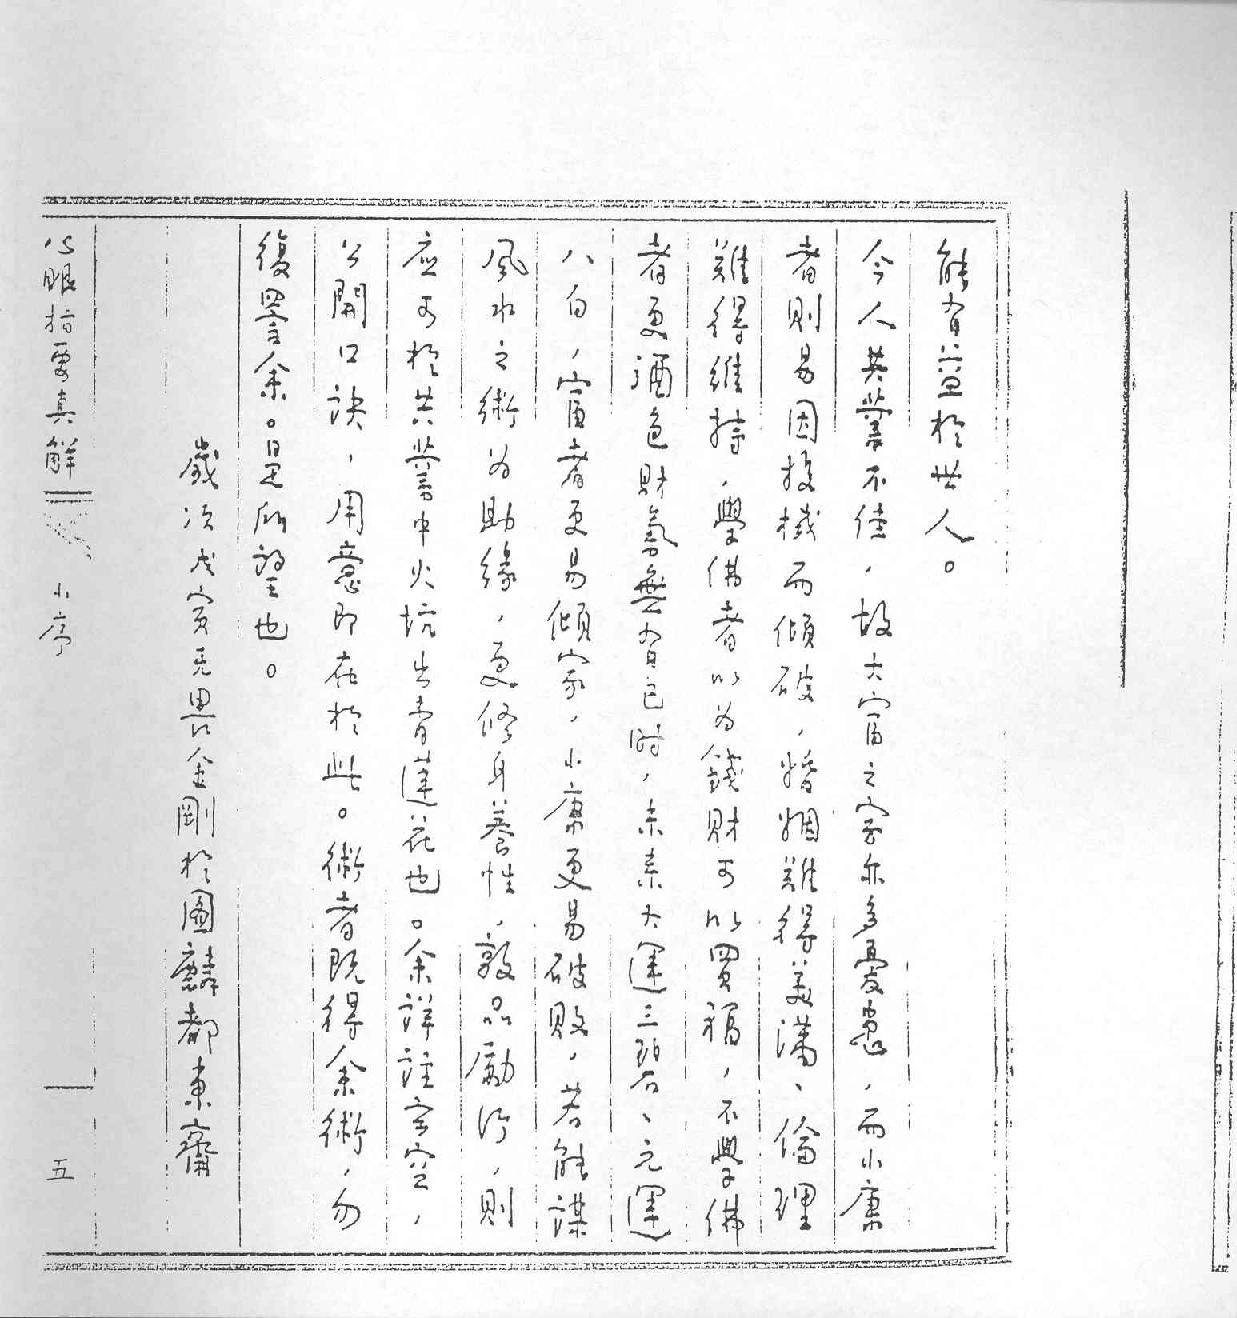 能有益於世人。
今人共業不佳，故大富之家亦多憂患，而小康
者則易因投機而傾破，婚姻難得美滿、倫理
難得維持，學佛者以為錢財可以買福，不學佛
者更酒色財氣無有已時，未來大運三碧、元運
八白，富者更易傾家，小康更易破敗，若能謀
風水之術為助緣，更修身養性，敦品勵行，則
應可於共業中火坑出青蓮花也。余詳註玄空，
公開口訣，用意即在於此。術者既得余術，勿
復詈余。是所望也。
歲次戊寅无畏金剛於圖麟都東齋
心眼指要真解　小序
五